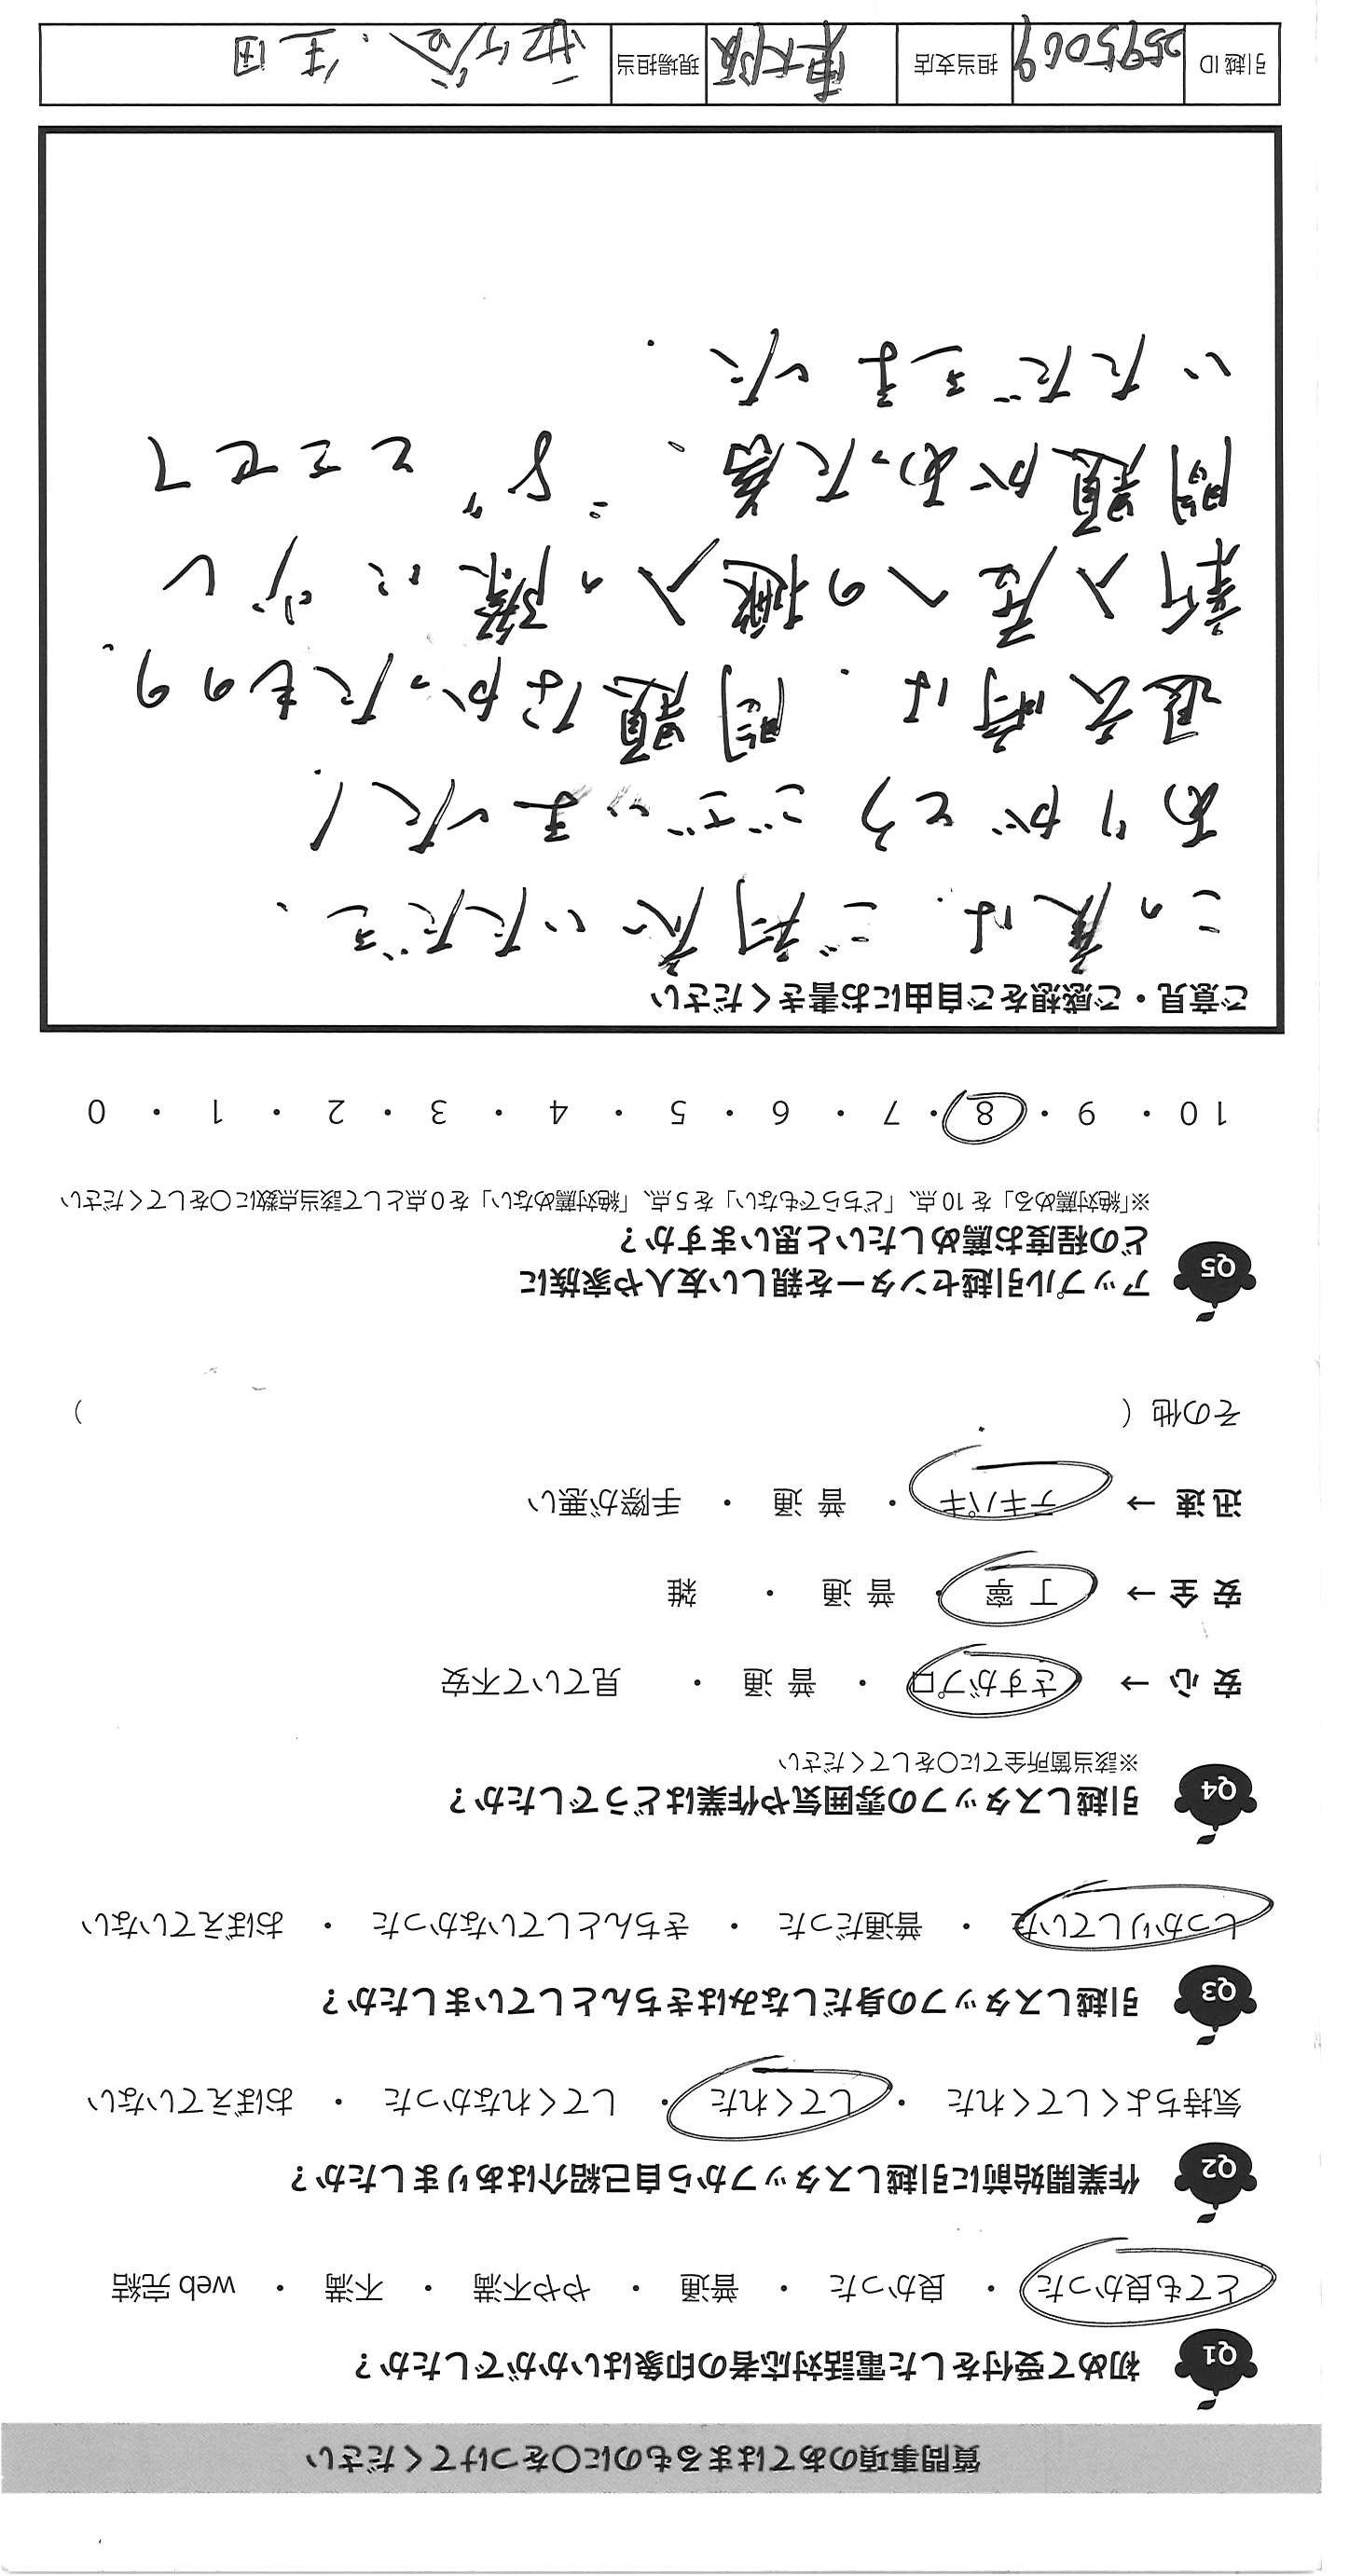 質問事項のあてはまるものに○をつけてください
Q1 初めて受付をした電話対応者の印象はいかがでしたか？
とても良かった ・ 良かった ・ 普通 ・ やや不満 ・ 不満 ・ web 完結
Q2 作業開始前に引越しスタッフから自己紹介はありましたか？
気持ちよくしてくれた ・ してくれた ・ してくれなかった ・ おぼえていない
Q3 引越しスタッフの身だしなみはきちんとしていましたか？
しっかりしていた ・ 普通だった ・ きちんとしていなかった ・ おぼえていない
Q4 引越しスタッフの雰囲気や作業はどうでしたか？
※該当箇所全てに○をしてください
安 心 → さすがプロ ・ 普 通 ・ 見ていて不安
安 全 → 丁 寧 ・ 普 通 ・ 雑
迅 速 → テキパキ ・ 普 通 ・ 手際が悪い
その他（ ）
Q5 アップル引越センターを親しい友人や家族に
どの程度お薦めしたいと思いますか？
※「絶対薦める」を 10 点、「どちらでもない」を 5 点、「絶対薦めない」を 0 点として該当点数に○をしてください
10 ・ 9 ・ 8 ・ 7 ・ 6 ・ 5 ・ 4 ・ 3 ・ 2 ・ 1 ・ 0
ご意見・ご感想をご自由にお書きください
この度は、ご対応いただき、
ありがとうございました！
退去時は、問題なかったものの、
新入居への搬入の際に少し
問題があった為、"8"とさせて
いただきました.
引越 ID 2595069 担当支店 東大阪 現場担当